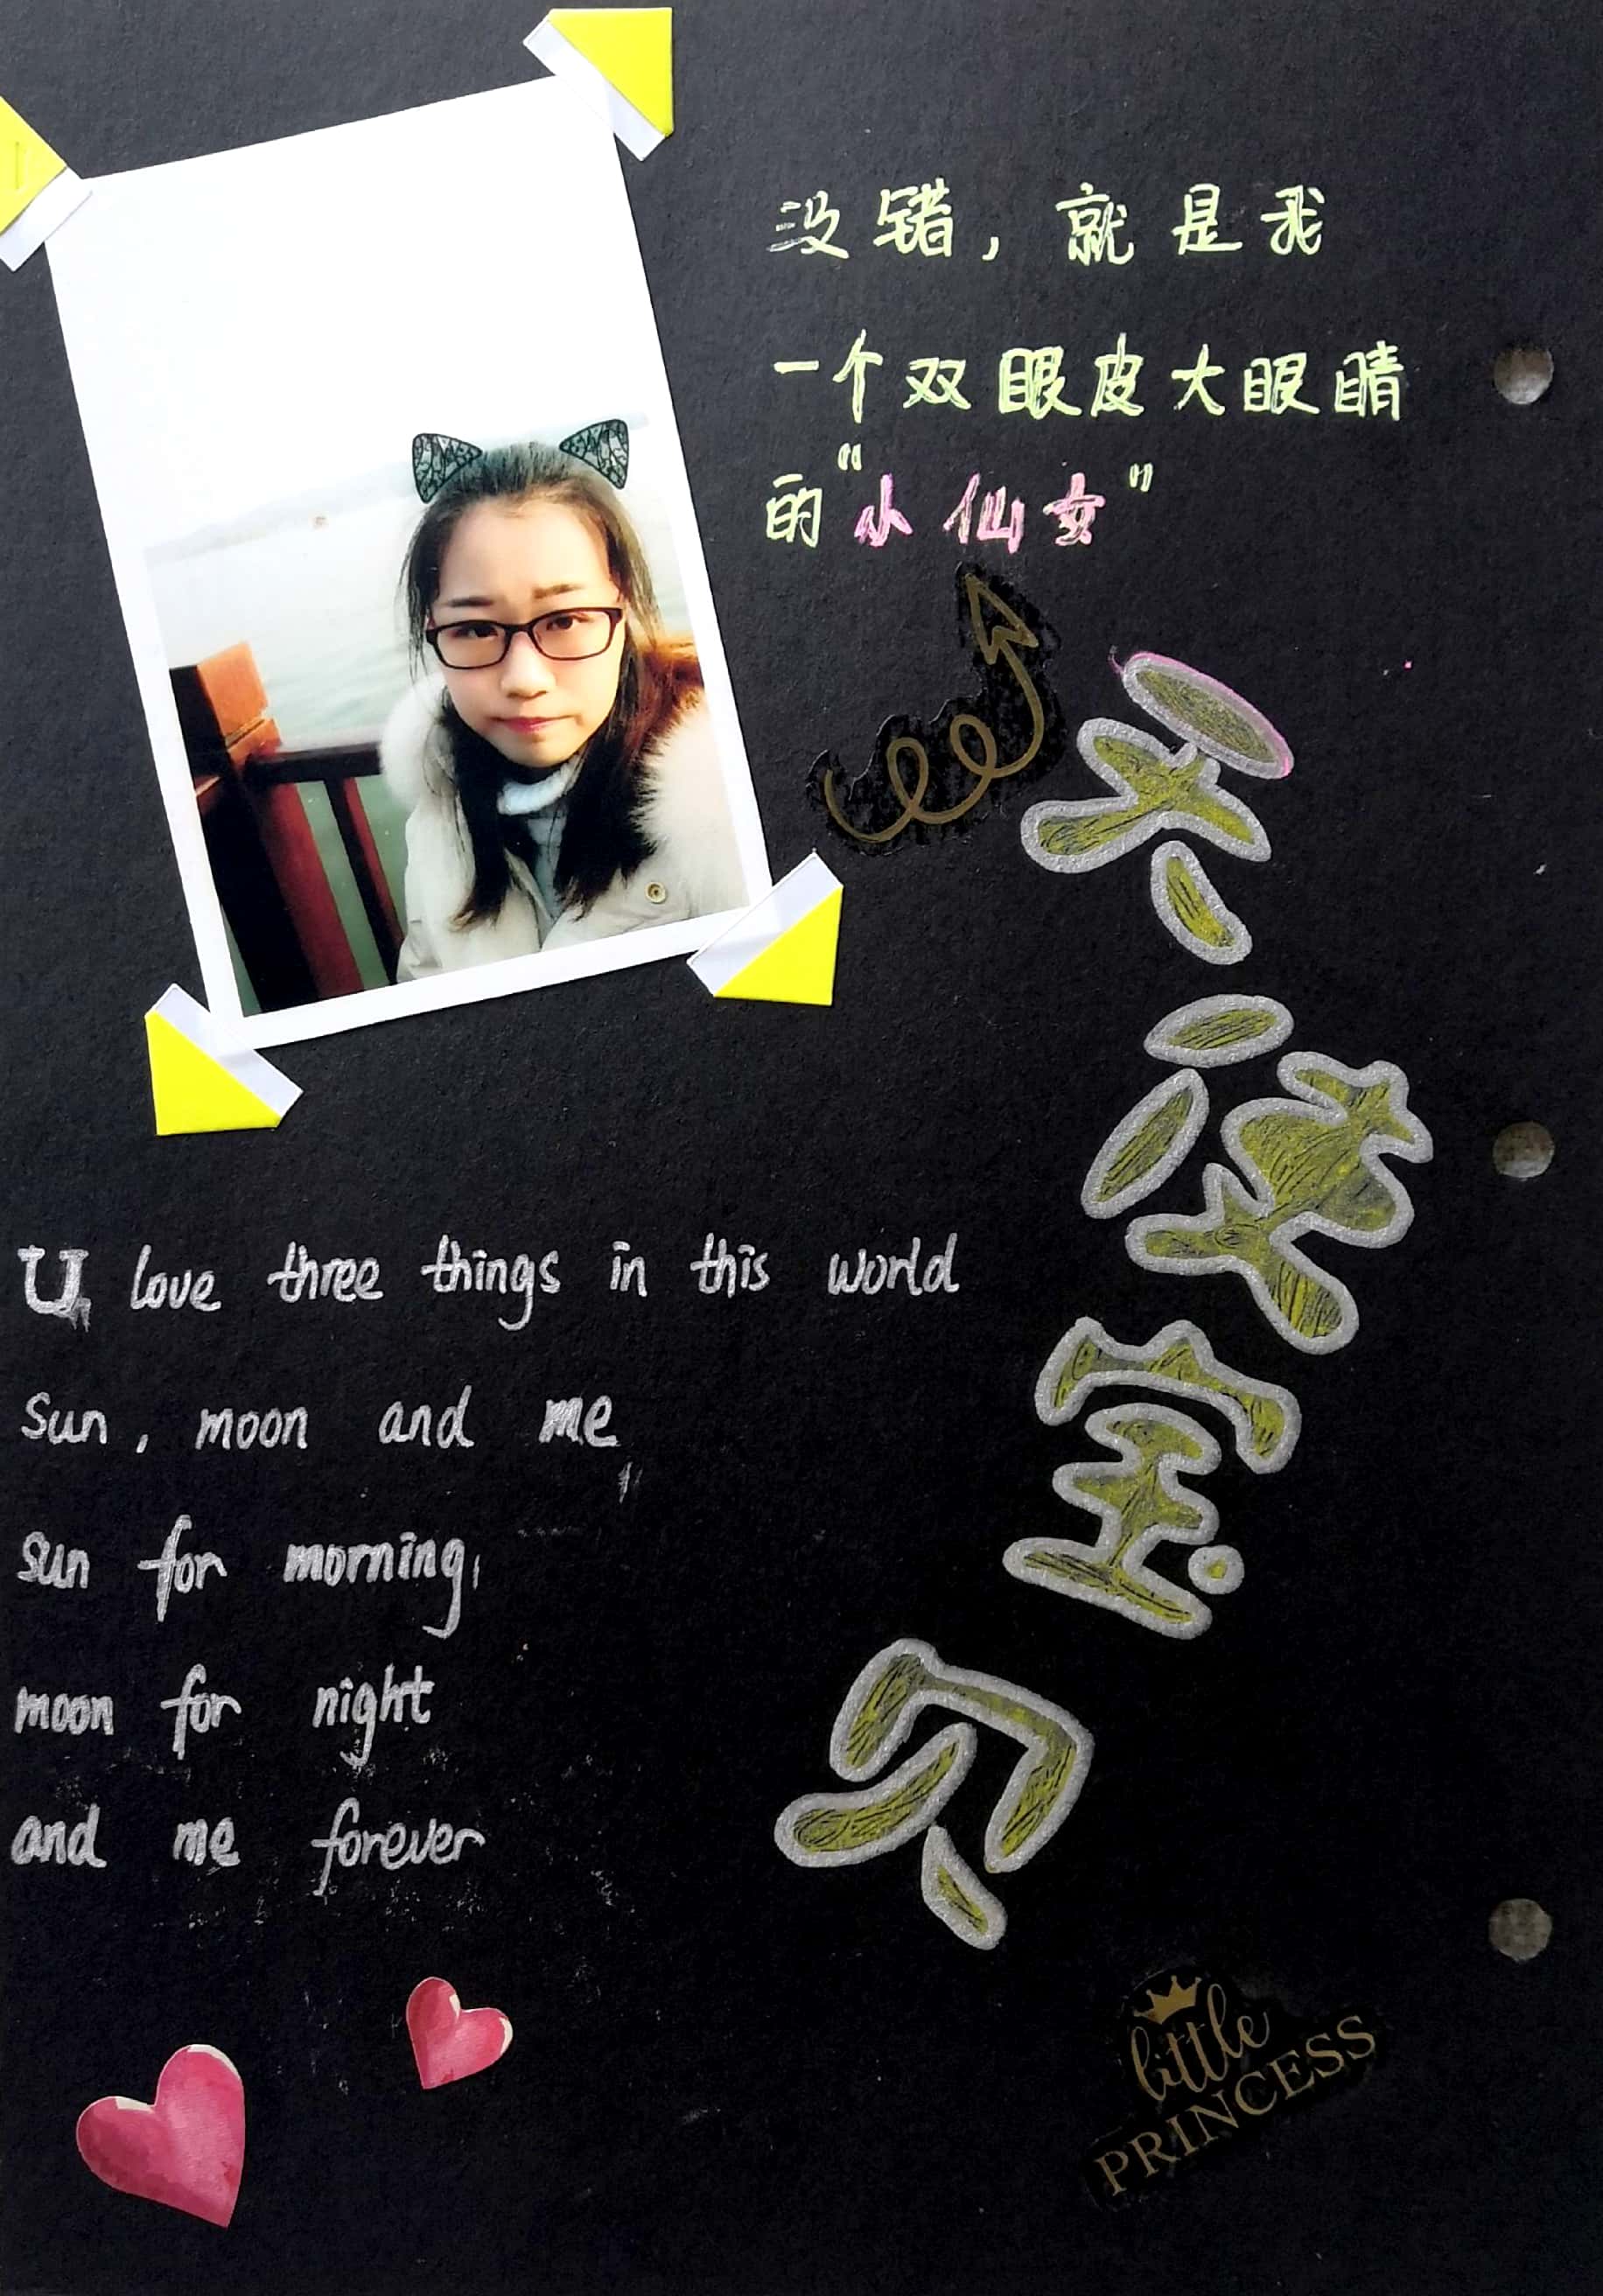 没错，就是我
一个双眼皮大眼睛
的“小仙女”
天使宝贝
U love three things in this world
sun, moon and me
sun for morning,
moon for night
and me forever
little
PRINCESS